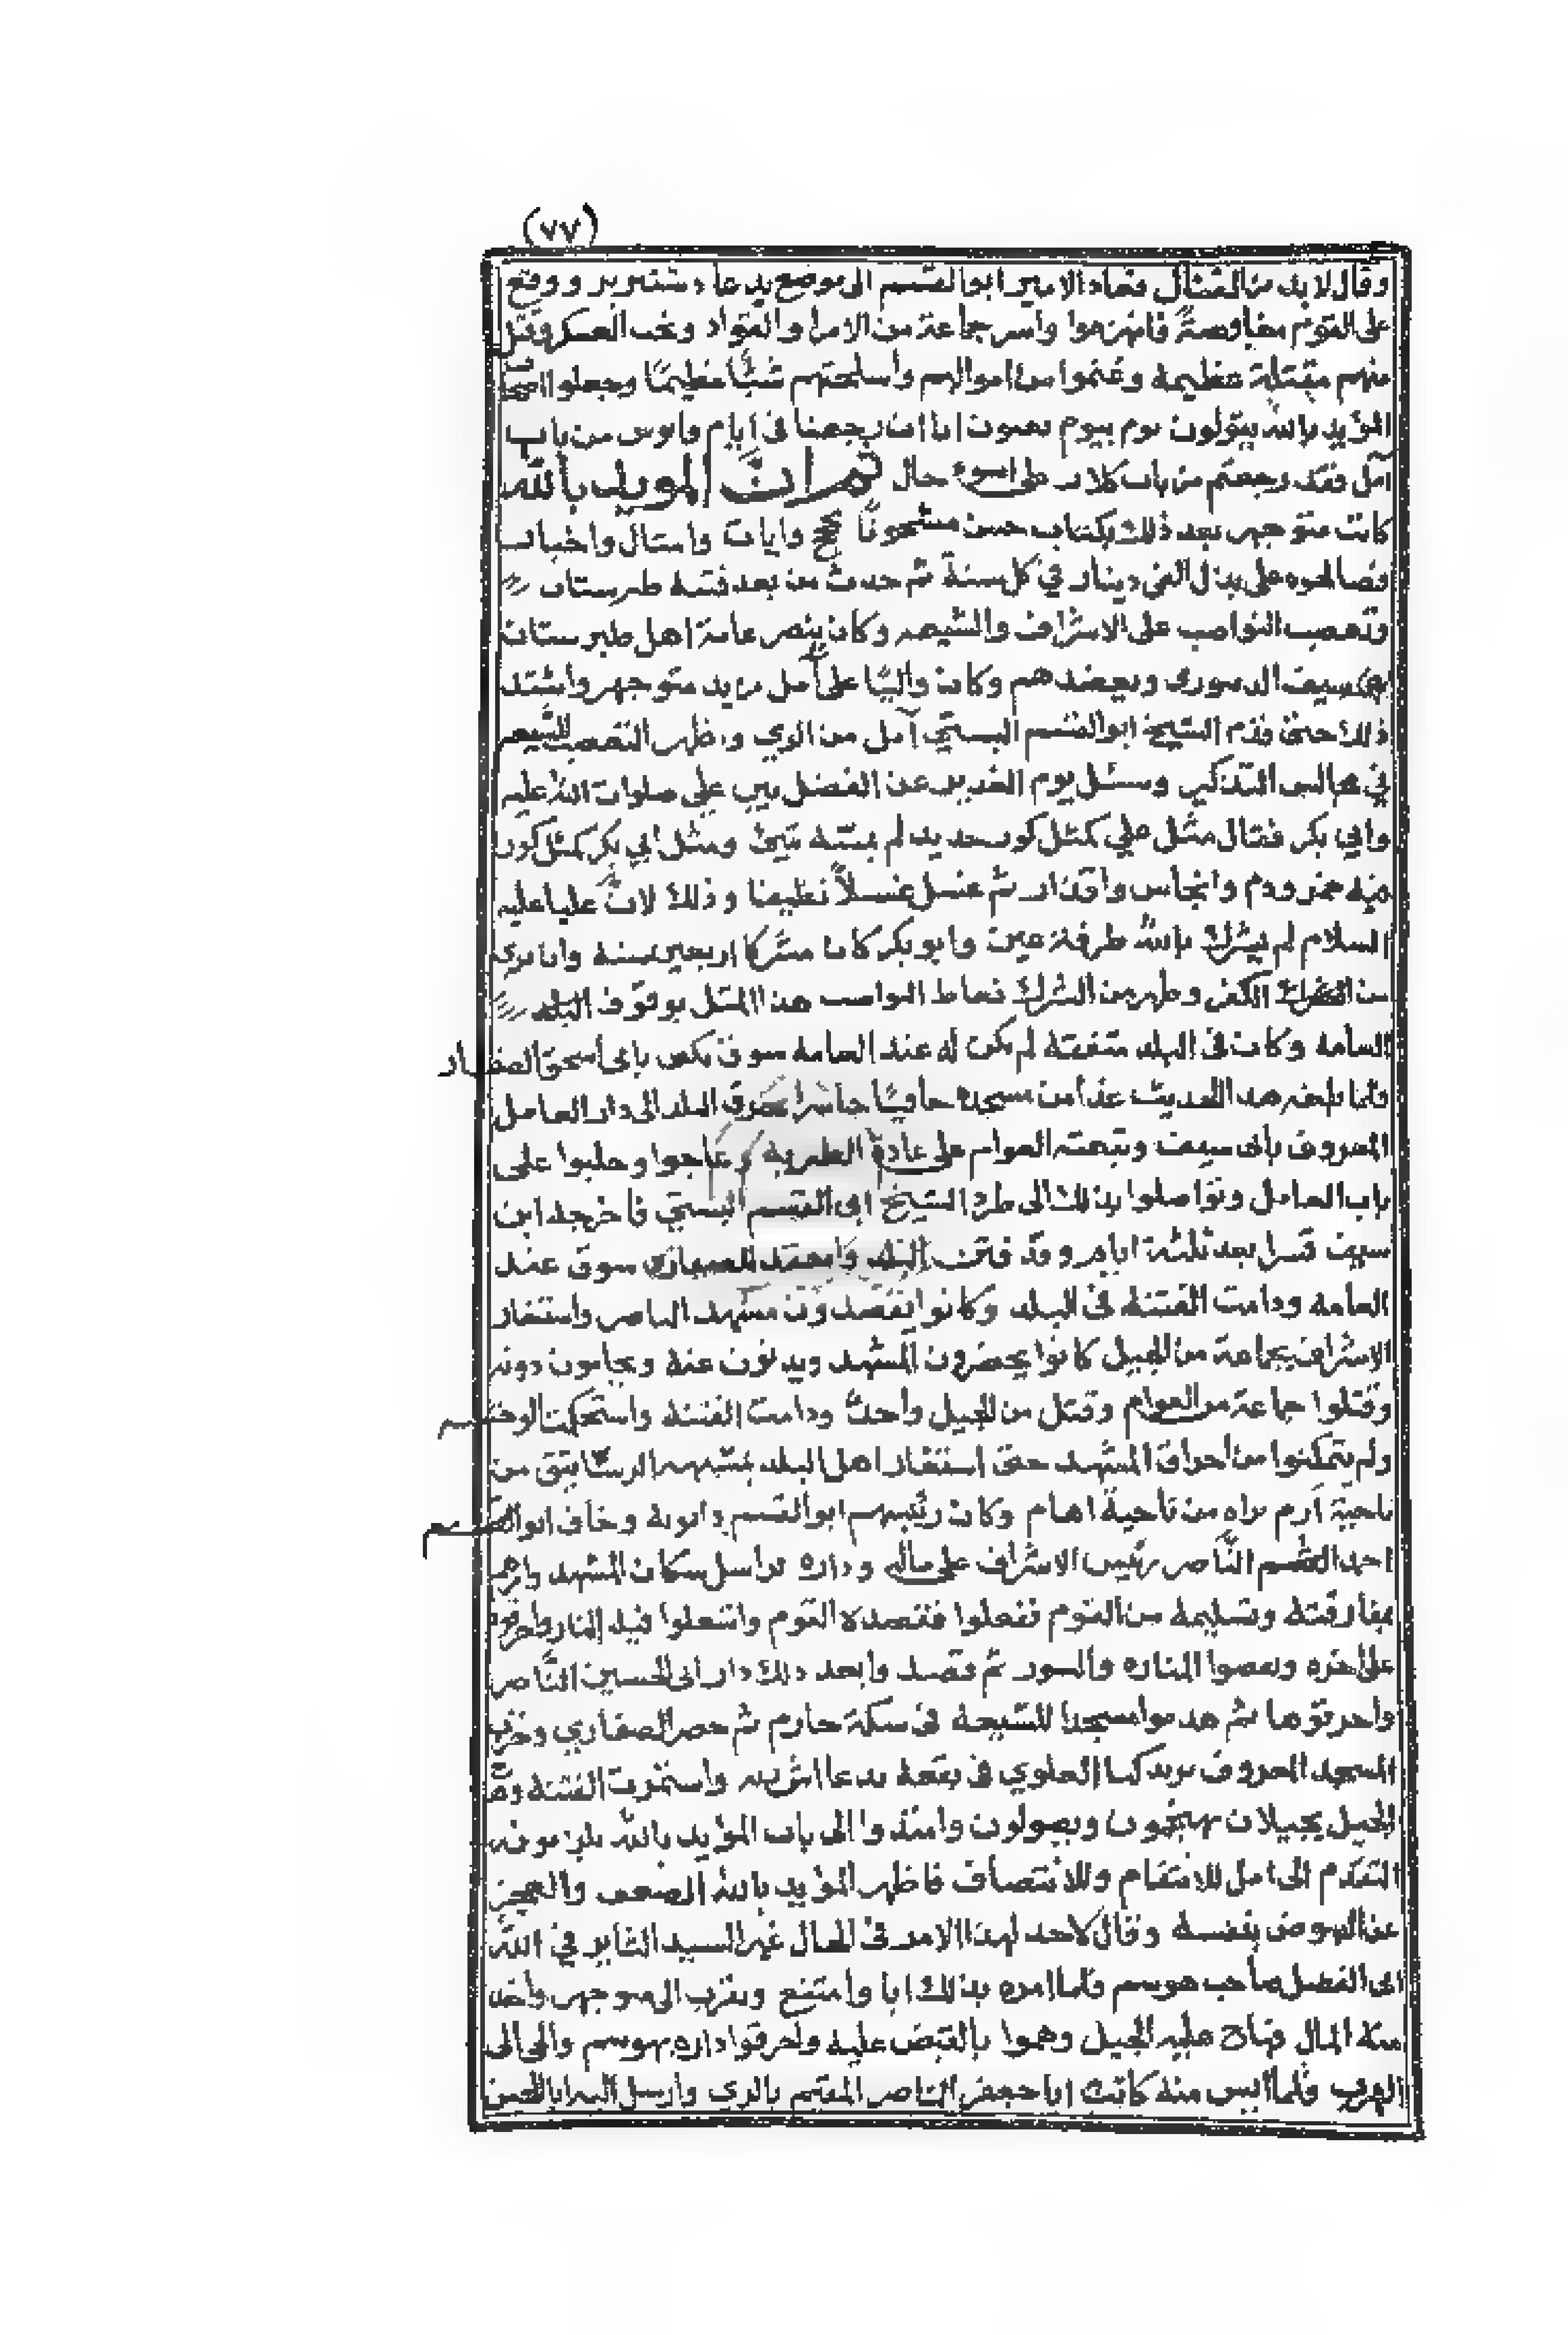 (٧٧)
وقال لا بد من القتال فعاد الامير ابو القسم الى موضع يدعا ووقع
على القوم مغافصةً فانهزموا واسر جماعة من الامرا والقواد ونخب العسكر وقتل
منهم مقتلة عظيمة وغنموا من اموالهم واسلحتهم شيًا عظيمًا وجعلوا اصحاب
المؤيد بالله يقولون يوم بيوم يعنون انا ان رجعنا في ايام قابوس من باب
آمل فقد رجعتم من باب كلار على اسوء حال ثم ان المويد بالله
كاتب متوجهر بعد ذلك بكتاب حسن مشحونًا وايات وامثال واخبار
فصالحوه على بذل الفى دينار في كل سنة ثم حدث من بعد فتنة طبرستان
وتعصب النواصب على الاشراف والشيعه وكان ينصر عامة اهل طبرستان
سيف الدينورى ويعضدهم وكان واليًا على آمل من يد متوجهر واشتد
ذلك حتى قدم الشيخ ابو القسم البستي آمل من الري واظهر التعصب للشيعه
في مجالس التذكير وسئل يوم الغدير عن الفضل بين علي صلوات الله عليه
وابي بكر فقال مثل علي كمثل كوب جديد لم يمسه شيئ ومثل ابي بكر كمثل كوب
فيه خمر ودم وانجاس واقذار ثم غسل غسلاً نظيفا وذلك لان عليا عليه
السلام لم يشرك بالله طرفة عين وابو بكر كان مشركا اربعين سنة وانا برئ
من الكفر وطهر من الشرك فعاط النواصب هذا المثل
العامه وكان فى البلد متفقه لم يكن له عند العامه سوق يكنى بابى اسحق الصفار
فلما بلغه هذا الحديث غدا من مسجده حافيًا حاسرا البلد الى دار العامل
المعروف بابى سيف وتبعته العوام على عادة الطبريه وعاجوا وجلبوا على
باب العامل وتواصلوا بذلك الى طرد الشيخ ابى القسم البستي فاخرجه ابن
سيف قسرا بعد ثلثة ايام وقد فتن البلد وانعقد للصفارى سوق عند
العامه ودامت الفتنة فى البلد وكانوا يقصدون مشهد الناصر واستنفار
الاشراف بجماعة من الجيل كانوا يحضرون المشهد ويدنون عنه ويحامون دونه
وقتلوا جماعة من العوام وقتل من الجيل واحدٌ ودامت الفتنة واستحكمت
ولم يتمكنوا من احراق المشهد حتى استنفار اهل البلد الرساتيق من
ناحية آرم براه من ناحية اهام وكان رئيسهم ابو القسم وخاف ابو القسم
احمد القسم النَّاصر رئيس الاشراف على ماله وداره فراسل سكان المشهد
بمفارقته وتسليمه من القوم ففعلوا فقصده القوم واشعلوا فيه النار واحرقوه
على اخره ونقضوا المناره والسور ثم قصد وابعد ذلك دار ابى الحسين النَّاصر
واحرقوها ثم هدموا مسجدا للشيعة فى سكة حارم ثم حصر الصفاري وخرب
المسجد المعروف العلوي فى بقعة يدعا واستمرت الفتنة
الجيل بجيلان يهيجون ويصولون وانفذوا الى باب المؤيد بالله يلزمونه
التقدم الى امل للانتقام وللانتصاف فاظهر المؤيد بالله الضعف والعجز
عن النهوض بنفسه وقال لاحد لهذا الامر فى الحال غير السيد الثاير في الله
ابى الفضل صاحب هوسم فلما امره بذلك ابا وامتنع وتقرب الى متوجهر واخذ
منه المال فهاج عليه الجيل وهموا بالقبض عليه واحرقوا داره بهوسم والجى الى
الهرب فلما ايس منه كاتب ابا جعفر الناصر المقيم بالري وارسل اليه ابا الحسن